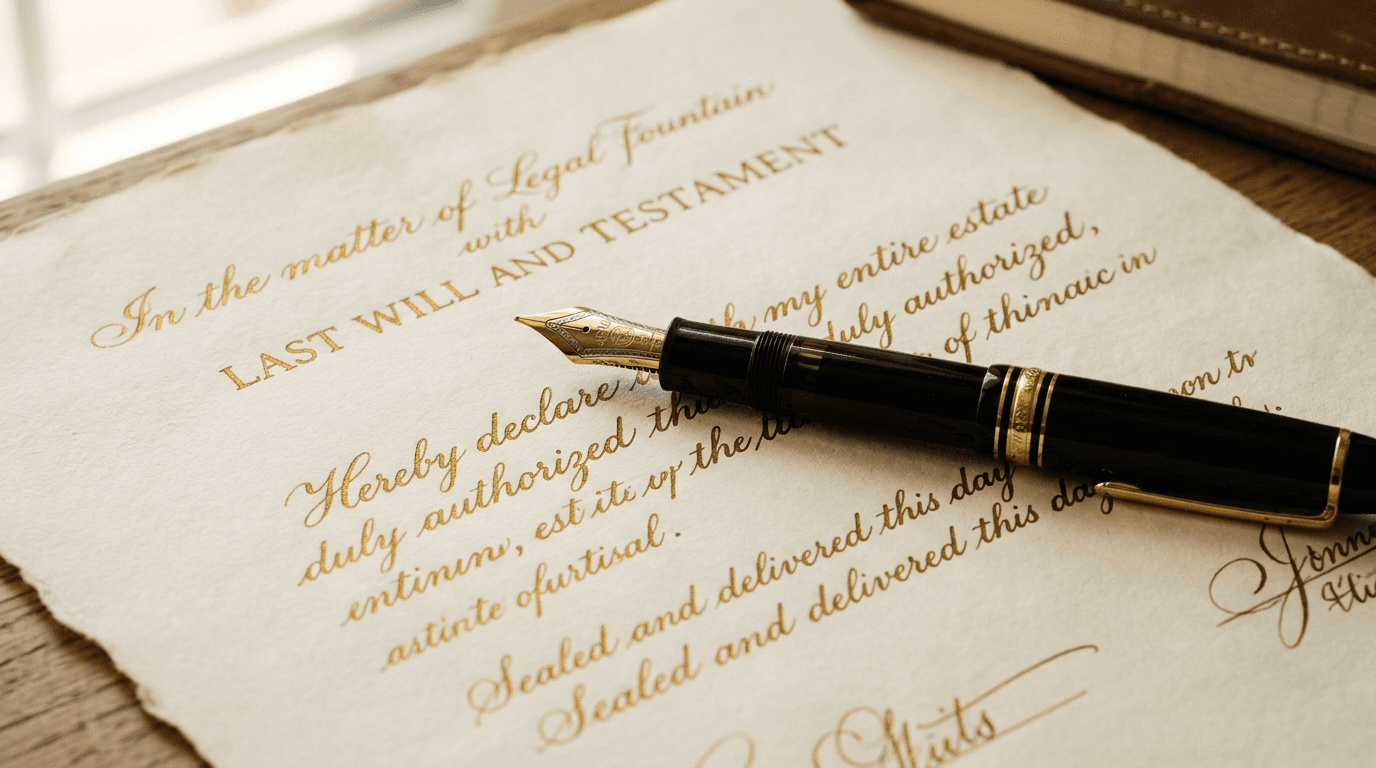 In the matter of Legal Fountain
with
LAST WILL AND TESTAMENT
Hereby declare my entire estate
duly authorized duly authorized,
entinum, est the of thinaic in
astinte ofurtisal.
Sealed and delivered this day
Sealed and delivered this day